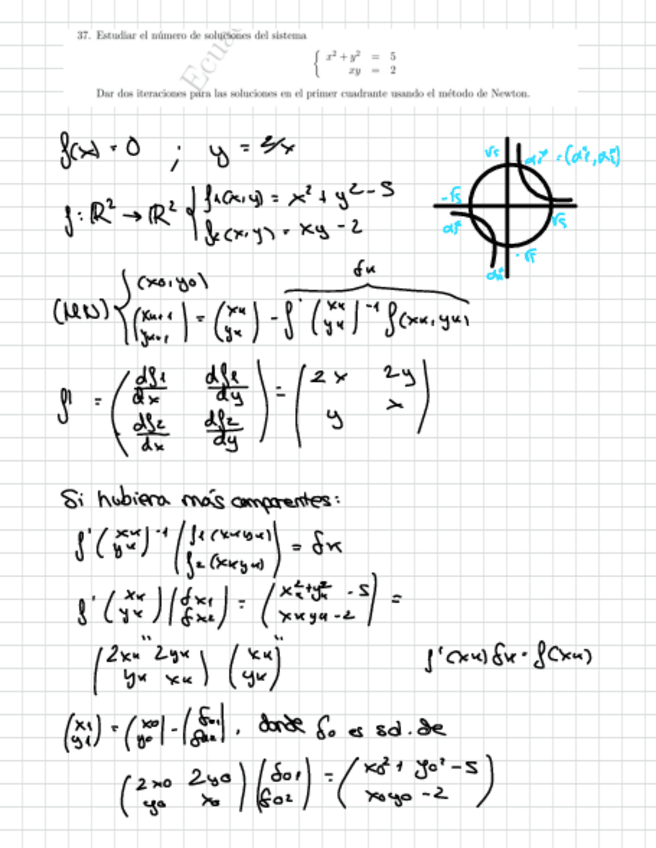 37. Estudiar el número de soluciones del sistema
x² + y² = 5
xy = 2
Ecua
Dar dos iteraciones para las soluciones en el primer cuadrante usando el método de Newton.
f(x) = 0 ; y = 2/x
f: ℝ² → ℝ² { f1(x,y) = x² + y² - 5
f2(x,y) = xy - 2
√5 α1* = (α1*, α2*)
-√5 √5
-√5
δk
(MN) { (x0, y0)
(xk+1 yk+1) = (xk yk) - f'(xk yk)⁻¹ f(xk, yk)
f' = (df1/dx df1/dy df2/dx df2/dy) = (2x 2y y x)
Si hubiera más componentes:
f'(xk yk)⁻¹ (f1(xk yk) f2(xk yk)) = δk
f'(xk yk) (δk1 δk2) = (xk² + yk² - 5 xk yk - 2) =
(2xk 2yk yk xk) (xk yk)
f'(xk) δk = f(xk)
(x1 y1) = (x0 y0) - (δ01 δ02), donde δ0 es sol. de
(2x0 2y0 y0 x0) (δ01 δ02) = (x0² + y0² - 5 x0y0 - 2)